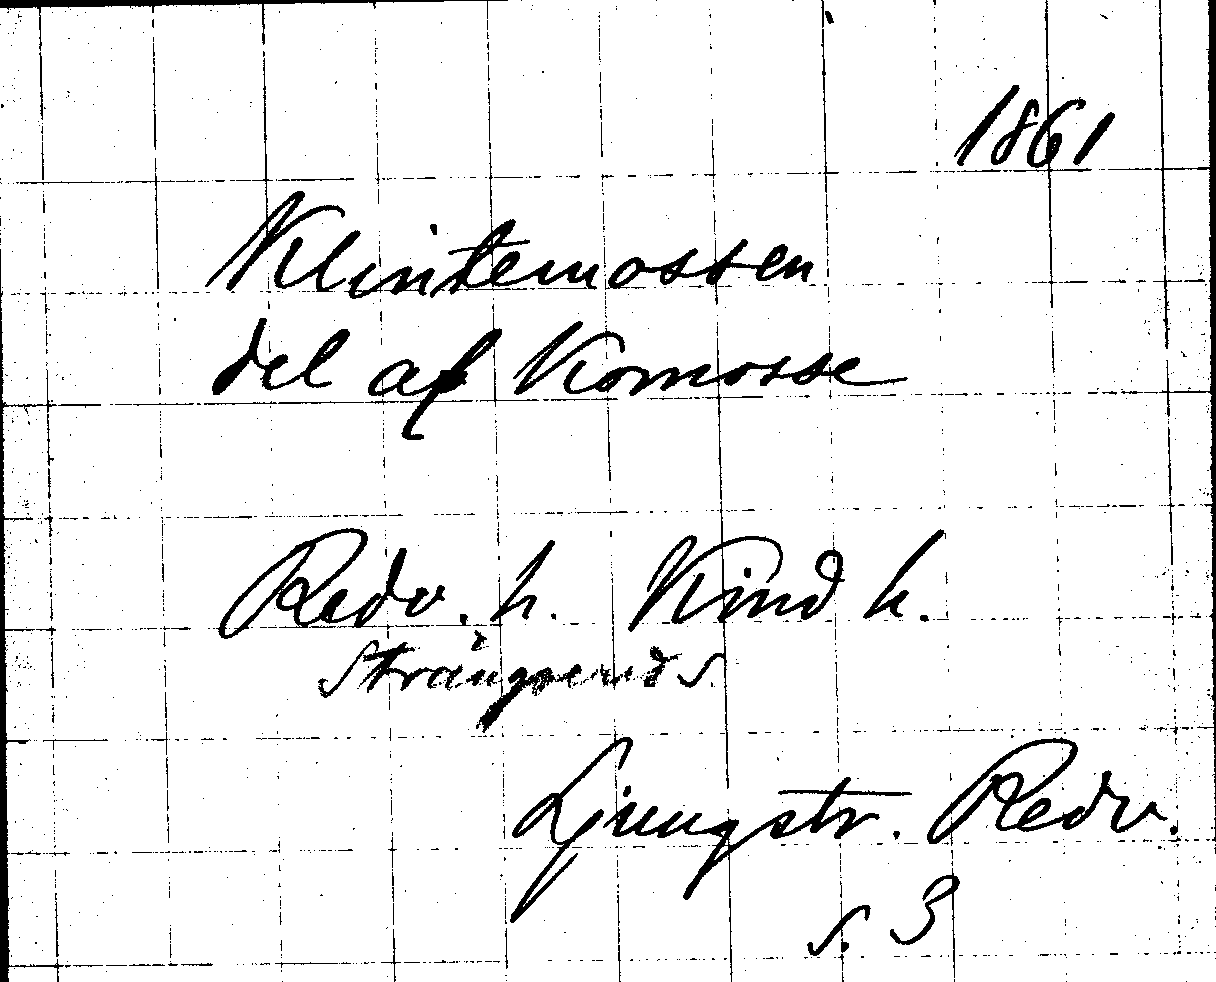 1861
Klintemossen
del af Komosse
Redv. h. Kind h.
Strängsereds s.
Ljungstr. Redv.
s. 3